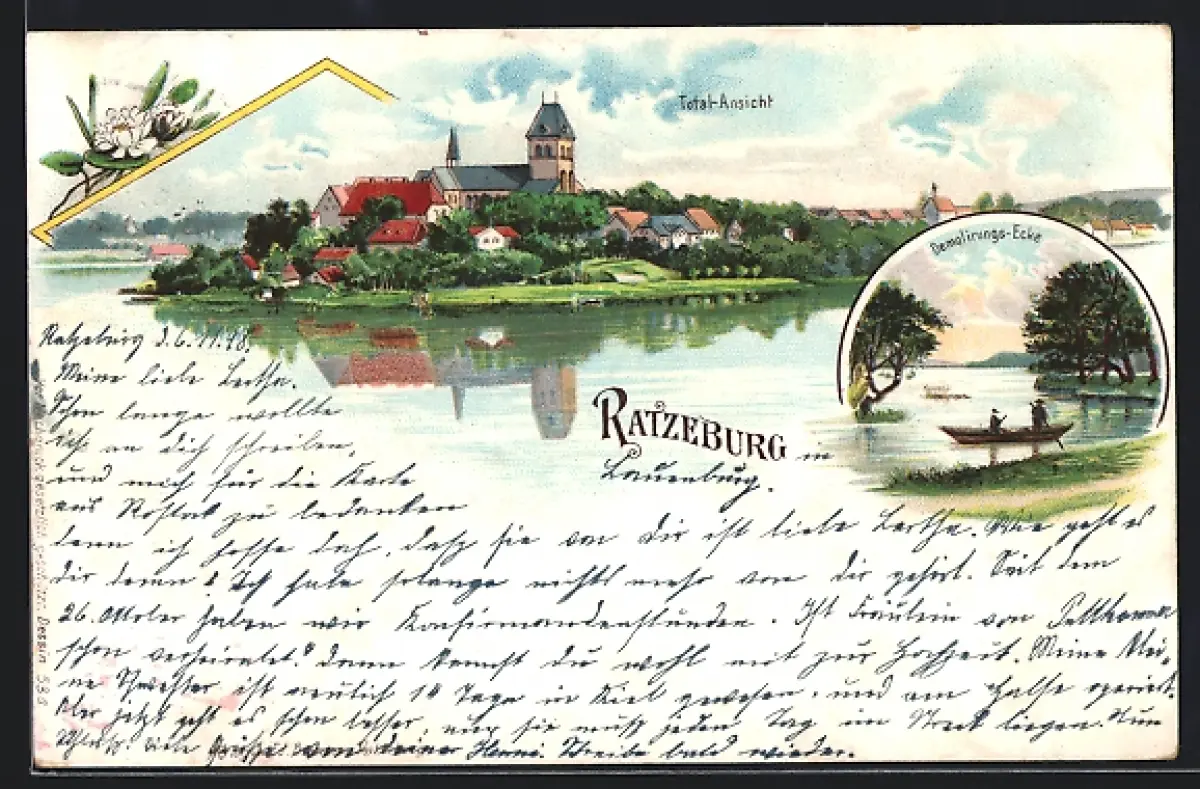 Total-Ansicht
Demolirungs-Ecke
RATZEBURG in
Lauenburg.
Ratzeburg d. 6. 11. 98.
Meine liebe Bertha.
Schon lange wollte
ich an dich schreiben,
und mich für die Karte
aus Rostock zu bedanken
denn ich hoffe doch, daß sie von dir ist liebe Bertha. Wie geht es
dir denn? Ich habe solange nichts mehr von dir gehört. Seit dem
26. Oktober haben wir Konfirmandenstunden. Ist Fräulein von
schon verheiratet? Dann kommst du wohl mit zur Hochzeit. Meine klei-
ne Schwester ist neulich 10 Tage in Kiel gewesen, und am Halse operiert.
Aber jetzt geht es schon besser, nur sie muß jeden Tag im Bett liegen. Nun
Schluß. Viele Grüße von deiner Henni. Schreibe bald wieder.
gesetzlich geschützt. Dessin 536